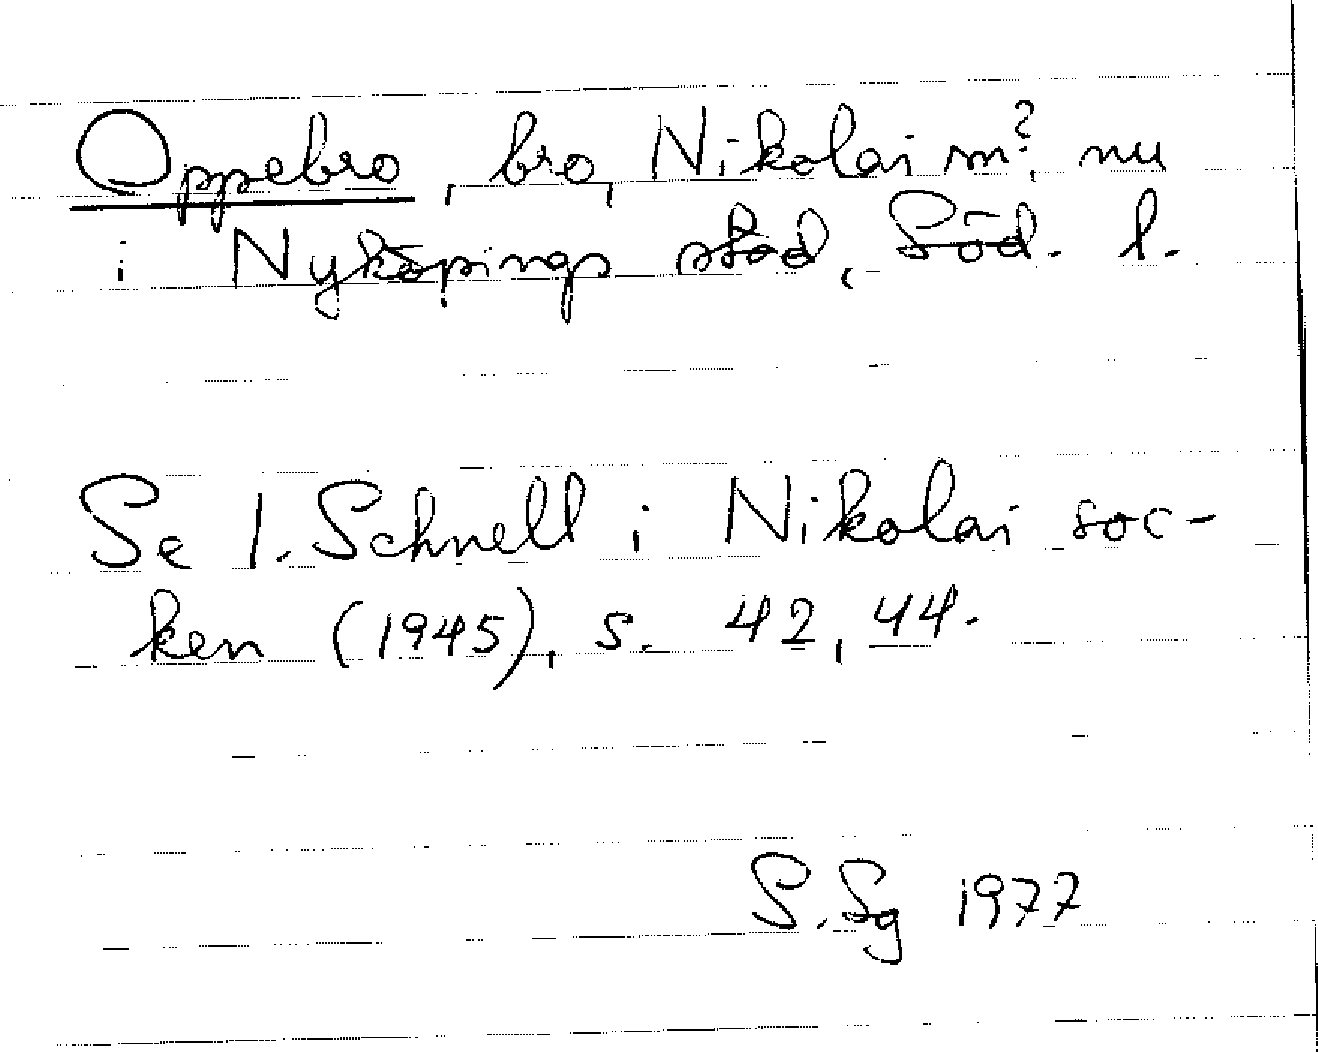 Oppebro, bro, Nikolai sn?, nu
i Nyköpings stad, Söd. l.
Se I. Schnell i Nikolai soc-
ken (1945), s. 42, 44.
S. Sg 1977